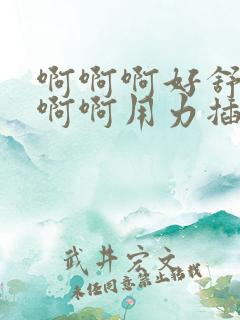 啊啊啊好舒
啊啊用力插
武井宏文
未经同意禁止转载